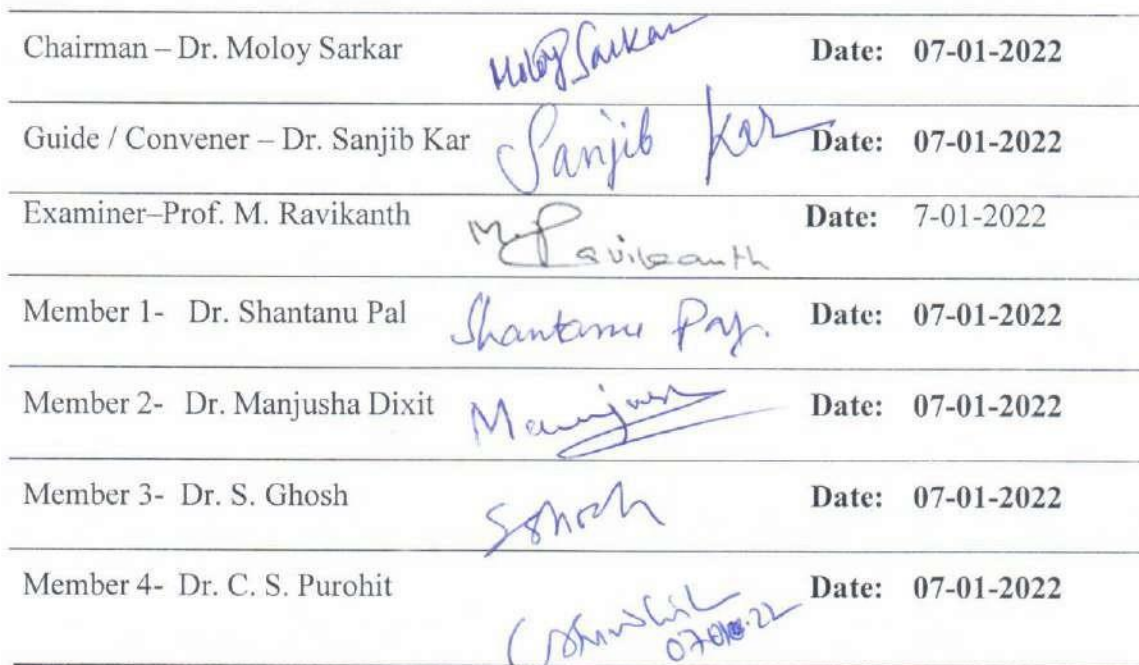 Chairman – Dr. Moloy Sarkar Moloy Sarkar Date: 07-01-2022
Guide / Convener – Dr. Sanjib Kar Sanjib Kar Date: 07-01-2022
Examiner–Prof. M. Ravikanth M. Ravikanth Date: 7-01-2022
Member 1- Dr. Shantanu Pal Shantanu Pal. Date: 07-01-2022
Member 2- Dr. Manjusha Dixit Date: 07-01-2022
Member 3- Dr. S. Ghosh SGhosh Date: 07-01-2022
Member 4- Dr. C. S. Purohit Date: 07-01-2022